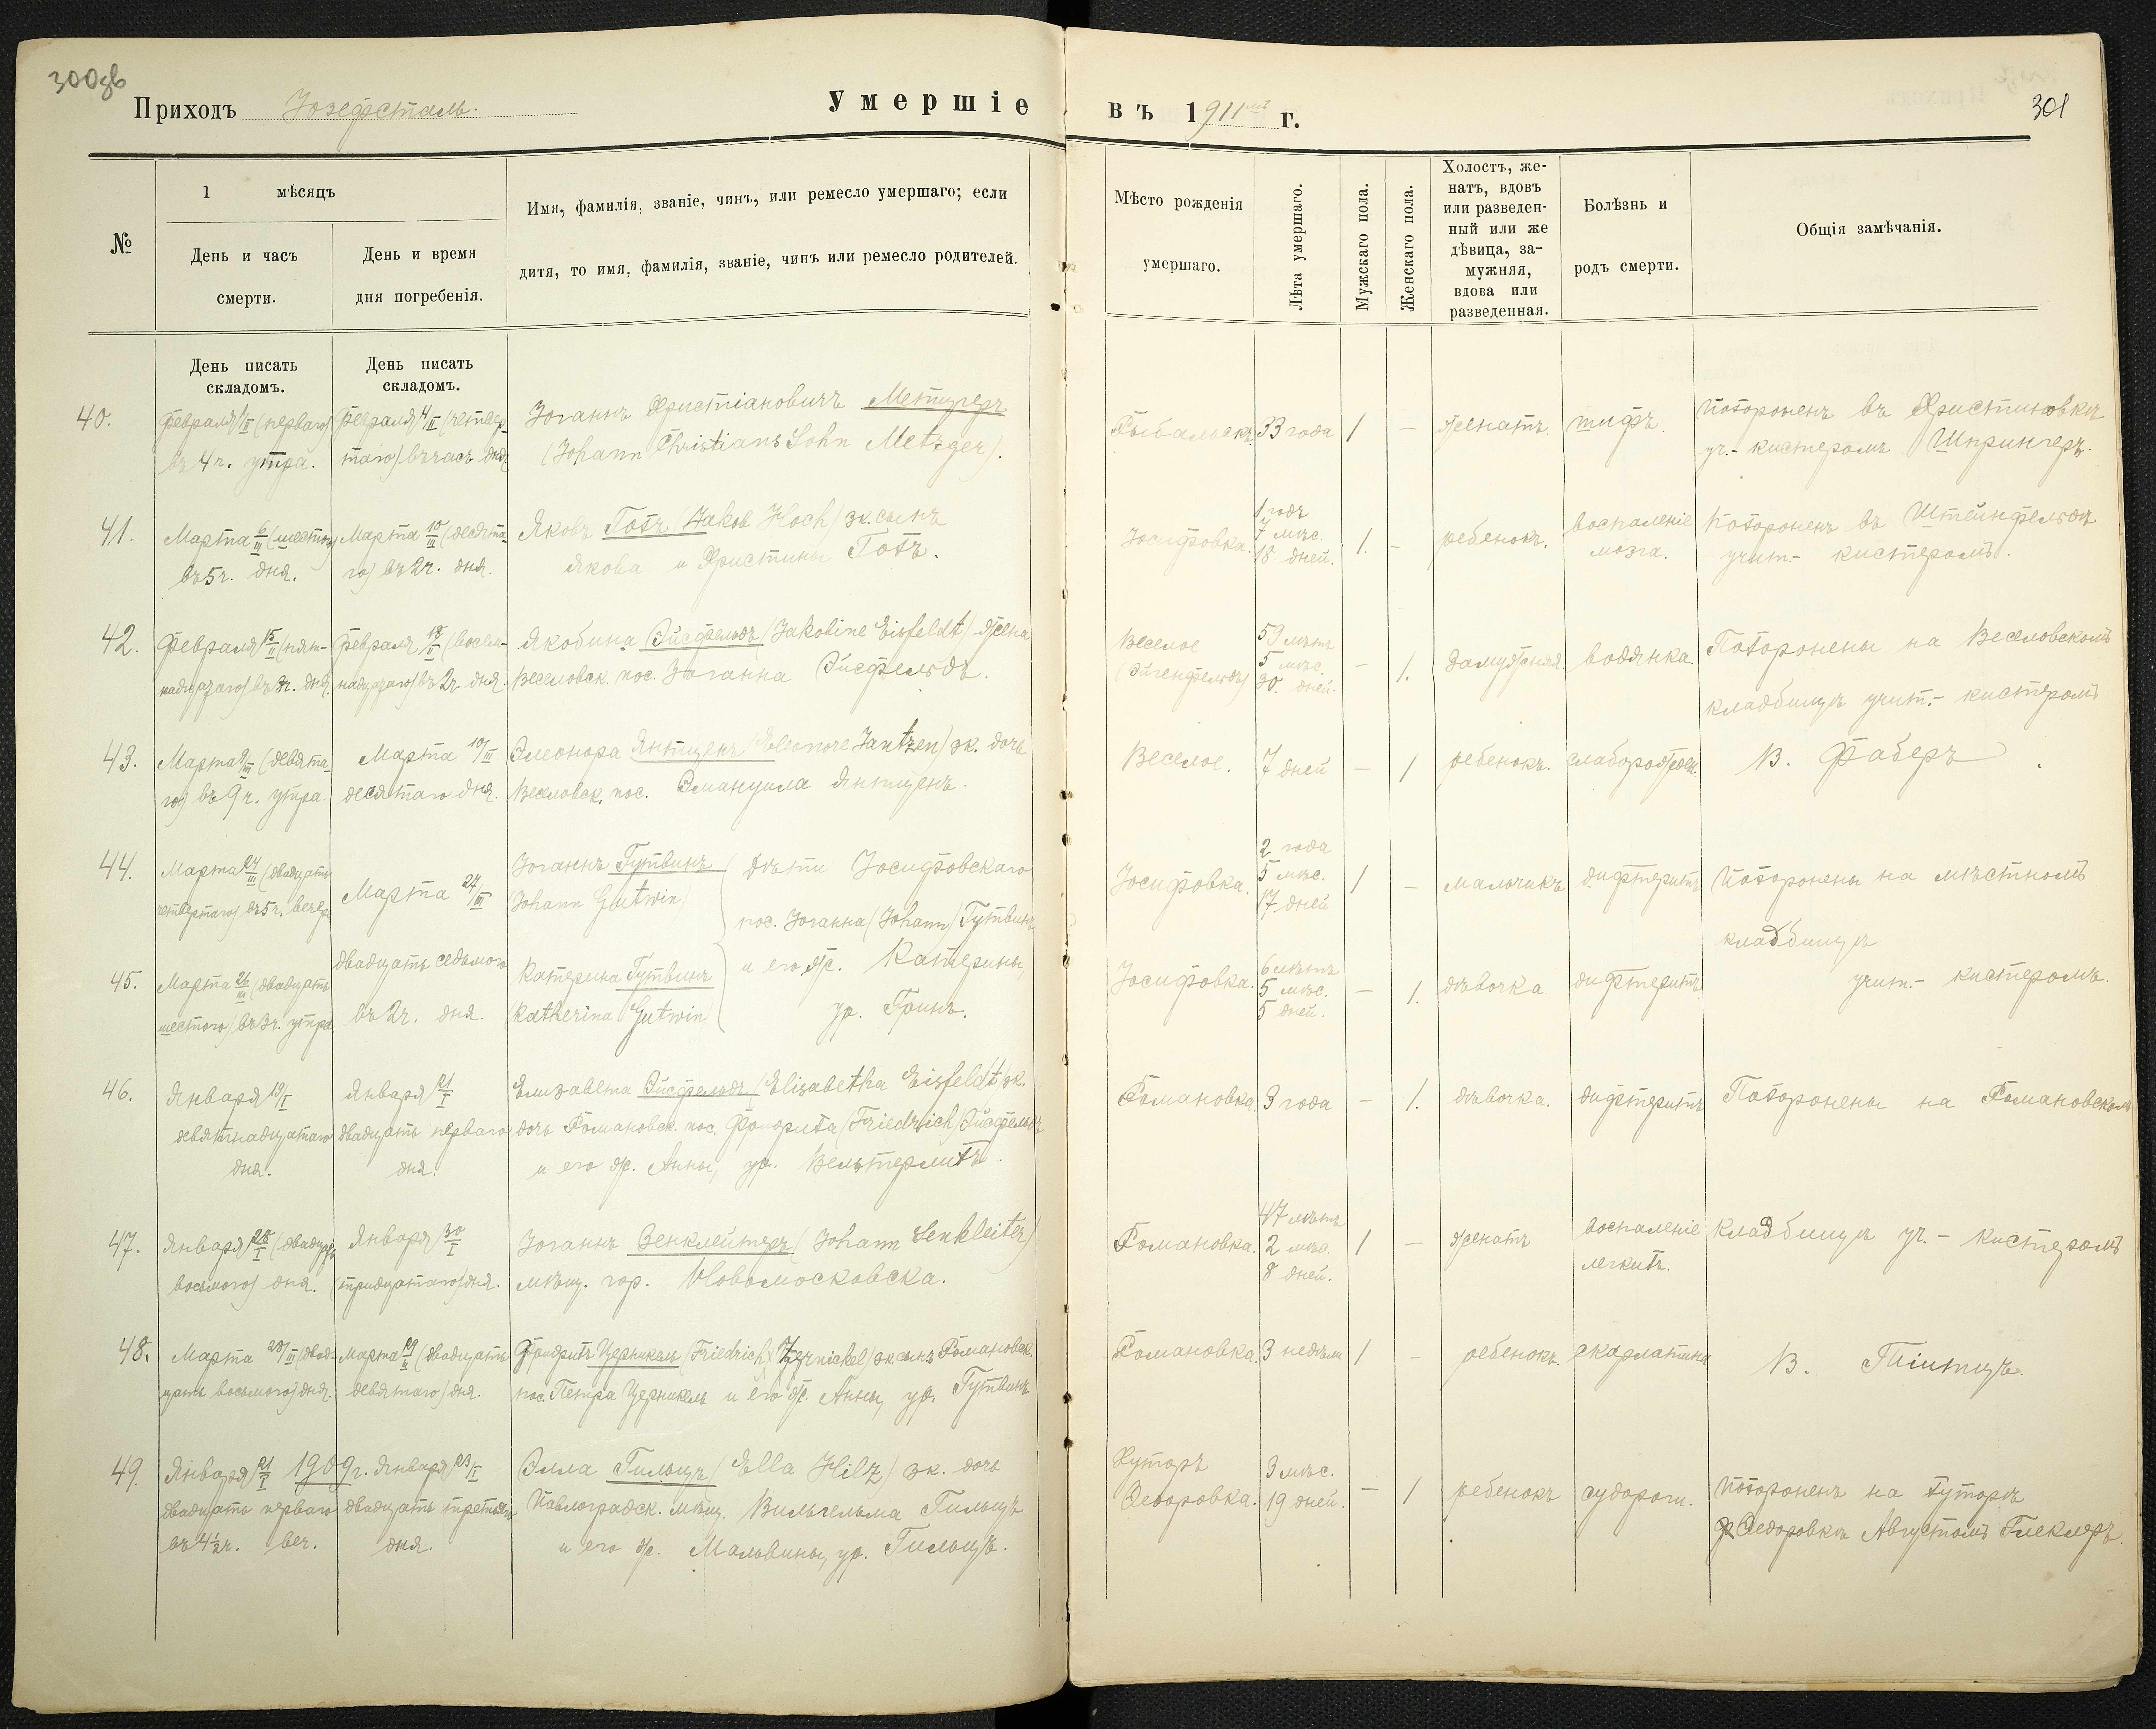 300зв
Приходъ Іозефсталь.
Умершіе
въ 1911мъ г.
301
№
1 мѣсяцъ
День и часъ
смерти.
День и время
дня погребенія.
Имя, фамилія, званіе, чинъ, или ремесло умершаго; если
дитя, то имя, фамилія, званіе, чинъ или ремесло родителей.
Мѣсто рожденія
умершаго.
Лѣта умершаго.
Мужскаго пола.
Женскаго пола.
Холостъ, же-
натъ, вдовъ
или разведен-
ный или же
дѣвица, за-
мужняя,
вдова или
разведенная.
Болѣзнь и
родъ смерти.
Общія замѣчанія.
День писать
складомъ.
День писать
складомъ.
40.
Февраля 1/II (перваго)
въ 4 ч. утра.
Февраля 4/II (четвер-
таго) въ часъ дня
Іоганнъ Христіановичъ Метцгеръ
(Johann Christians Sohn Metzger).
Рыбальскъ.
33 года
1
-
женатъ.
тифъ.
Похороненъ въ Христиновкѣ
уч.- кистеромъ Шпрингеръ.
41.
Марта 6/III (шестого)
въ 5 ч. дня.
Марта 10/III (десята-
го) въ 2 ч. дня.
Яковъ Гохъ (Jakob Hoch) зк. сынъ
Якова и Христины Гохъ.
Іосифовка.
1 годъ
7 мѣс.
18 дней.
1.
-
ребенокъ.
воспаленіе
мозга.
Похороненъ въ Штейнфельдѣ
учит.- кистеромъ.
42.
Февраля 15/II (пят-
надцатаго) въ 3 ч. дня.
Февраля 18/II (восем-
надцатаго) въ 2 ч. дня.
Якобина Эйсфельдъ (Jakobine Eisfeldt) жена
Веселовск. пос. Іоганна Эйсфельдъ.
Веселое
(Эйгенфельдъ)
59 лѣтъ
5 мѣс.
30 дней.
-
1.
замужняя
водянка.
Похоронены на Веселовскомъ
кладбищѣ учит.- кистеромъ
43.
Марта 9/III (девята-
го) въ 9 ч. утра.
Марта 10/III
десятаго дня.
Элеонора Янтценъ (Eleonore Jantzen) зк. дочь
Веселовск. пос. Эмануила Янтценъ.
Веселое.
7 дней
-
1
ребенокъ.
слаборожден.
В. Фаберъ.
44.
Марта 24/III (двадцать
четвертаго) въ 5 ч. вечера
Марта 27/III
Іоганнъ Гутвинъ
(Johann Gutwin)
дѣти Іосифовскаго
пос. Іоганна (Johann) Гутвинъ
Іосифовка.
2 года
5 мѣс.
17 дней
1
-
мальчикъ
дифтеритъ
Похоронены на мѣстномъ
кладбищѣ
45.
Марта 26/III (двадцать
шестого) въ 3 ч. утра
двадцать седьмого
въ 2 ч. дня.
Катерина Гутвинъ
(Katherina Gutwin)
и его ж. Катерины,
ур. Гринъ.
Іосифовка.
6 лѣтъ
5 мѣс.
5 дней.
-
1.
дѣвочка.
дифтеритъ.
учит.- кистеромъ.
46.
Января 19/I
девятнадцатаго
дня.
Января 21/I
двадцать перваго
дня.
Елизавета Эйсфельдъ (Elisabetha Eisfeldt) зк.
дочь Романовск. пос. Фридриха (Friedrich) Эйсфельдъ
и его ж. Анны, ур. Вельтермихъ.
Романовка.
3 года
-
1.
дѣвочка.
дифтеритъ
Похоронены на Романовскомъ
47.
Января 28/I (двадцать
восьмого) дня.
Января 30/I
(тридцатаго) дня.
Іоганнъ Зенклейтеръ (Johann Senkleiter)
мѣщ. гор. Новомосковска.
Романовка.
47 лѣтъ
2 мѣс.
8 дней.
1
-
женатъ
воспаленіе
легкихъ.
кладбищѣ уч.- кистеромъ
48.
Марта 28/III (двад-
цать восьмого) дня.
Марта 29/ (двадцать
девятаго) дня.
Фридрихъ Церникель (Friedrich Zerniakel) зк. сынъ Романовск.
пос. Петра Церникель и его ж. Анны, ур. Гутвинъ
Романовка.
3 недѣли
1
-
ребенокъ.
скарлатина
В. Тіитцъ.
49.
Января 21/I 1909 г.
двадцать перваго
въ 4 1/2 ч. веч.
Января 23/I
двадцать третьяго
дня.
Элла Гильцъ (Ella Hilz) зк. дочь
Павлоградск. мѣщ. Вильгельма Гильцъ
и его ж. Мальвины, ур. Гильцъ.
Хуторъ
Ѳедоровка.
3 мѣс.
19 дней.
-
1
ребенокъ
судороги.
Похороненъ на хуторѣ
Ѳедоровкѣ Августомъ Глеклеръ.